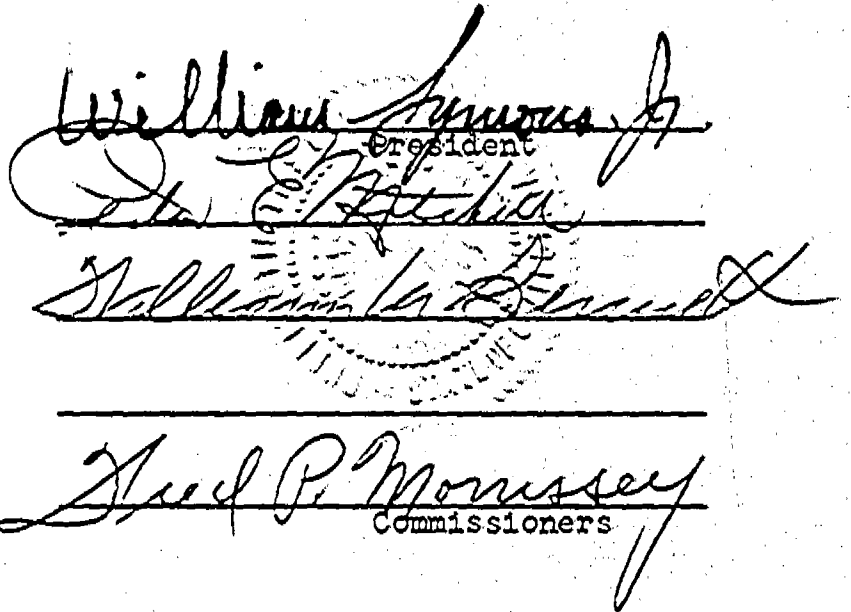 William Symons Jr.
President
Peter E. Mitchell
William M. Bennett
Fred P. Morrissey
Commissioners